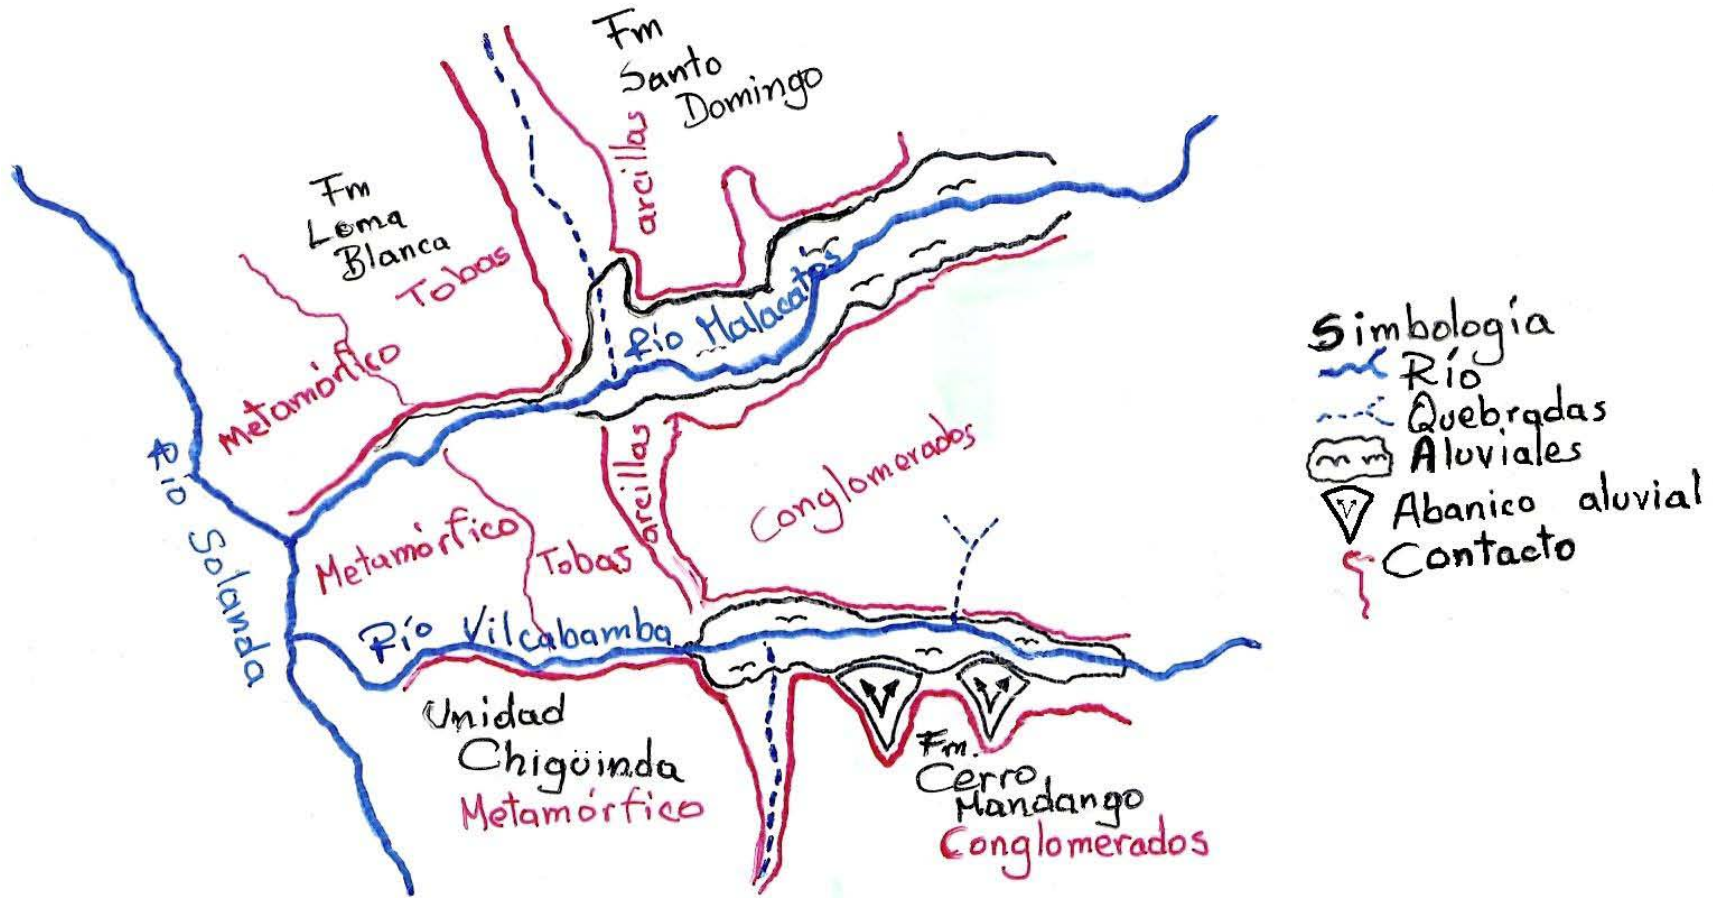 Fm
Santo
Domingo
arcillas
Fm
Loma
Blanca
Tobas
Metamórfico
Río Malacatos
Río
Solanda
Metamórfico
Tobas
arcillas
Conglomerados
Río Vilcabamba
Unidad
Chigüinda
Metamórfico
Fm.
Cerro
Mandango
Conglomerados
Simbología
Río
Quebradas
Aluviales
Abanico aluvial
Contacto